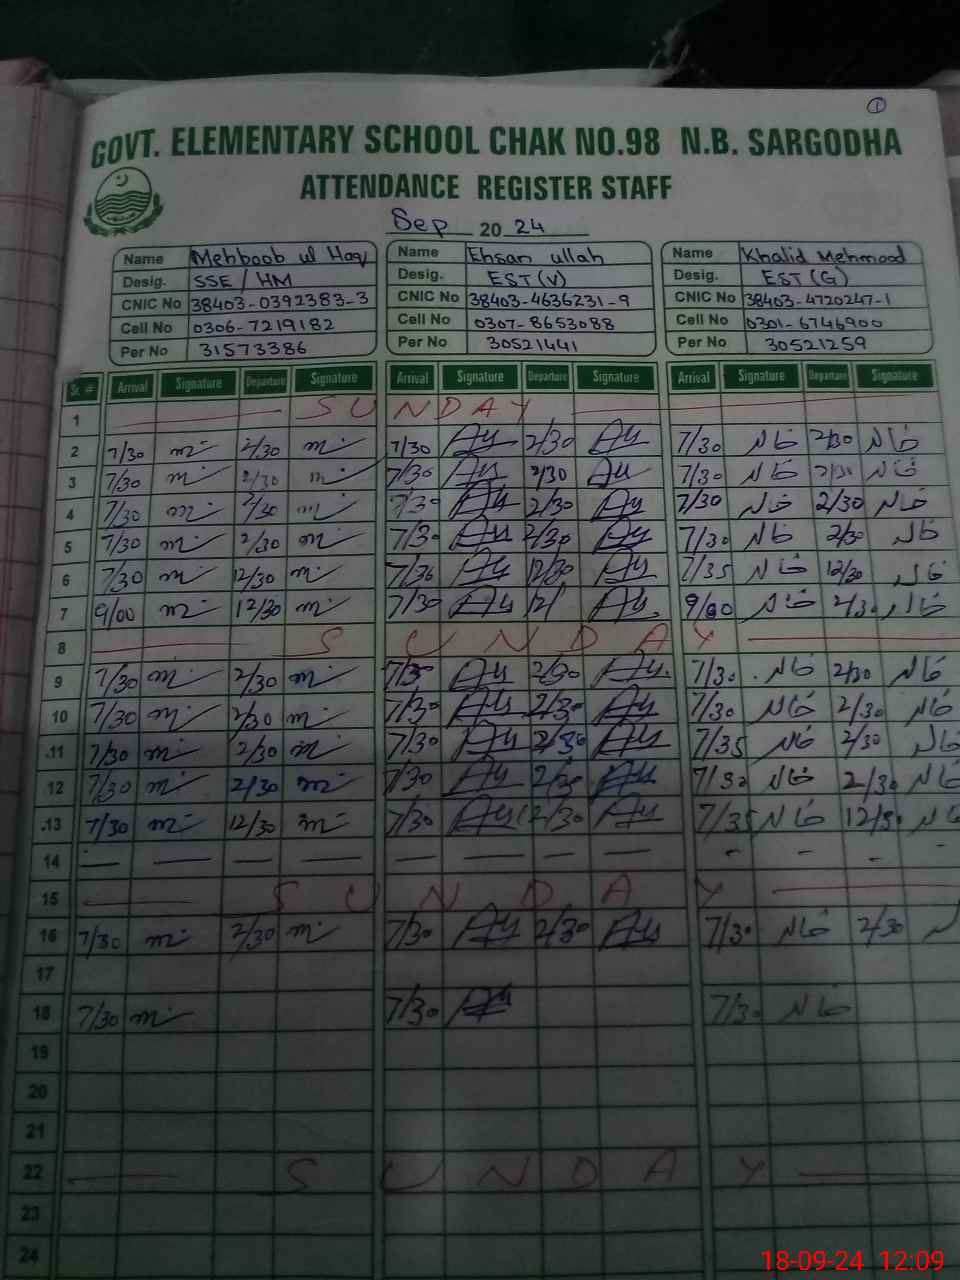 1
GOVT. ELEMENTARY SCHOOL CHAK NO.98 N.B. SARGODHA
ATTENDANCE REGISTER STAFF
Sep 2024
Name Mehboob ul Haq Name Ehsan ullah Name Khalid Mehmood
Desig. SSE / HM Desig. EST (V) Desig. EST (G)
CNIC No 38403-0392383-3 CNIC No 38403-4636231-9 CNIC No 38403-4720247-1
Cell No 0306-7219182 Cell No 0307-8653088 Cell No 0301-6746900
Per No 31573386 Per No 30521441 Per No 30521259
Sr. # Arrival Signature Departure Signature Arrival Signature Departure Signature Arrival Signature Departure Signature
1 SUNDAY
2 7/30 2/30 7/30 2/30 7/30 خالد 2/30 خالد
3 7/30 2/30 7/30 2/30 7/30 خالد 2/30 خالد
4 7/30 2/30 7/30 2/30 7/30 خالد 2/30 خالد
5 7/30 2/30 7/30 2/30 7/30 خالد 2/30 خالد
6 7/30 12/30 12/30 7/35 خالد 12/30 خالد
7 9/00 12/30 7/30 12/ 9/00 خالد 2/30 خالد
8 SUNDAY
9 7/30 2/30 7/30 2/30 7/30 خالد 2/30 خالد
10 7/30 2/30 7/30 2/30 7/30 خالد 2/30 خالد
11 7/30 2/30 7/30 2/30 7/35 خالد 2/30 خالد
12 7/30 2/30 7/30 2/30 7/30 خالد 2/30 خالد
13 7/30 12/30 7/30 12/30 7/35 خالد 12/30 خالد
14 — — — — — — — — - - - -
15 SUNDAY
16 7/30 2/30 7/30 2/30 7/30 خالد 2/30
17
18 7/30 7/30 7/30 خالد
19
20
21
22 SUNDAY
23
24
18-09-24 12:09